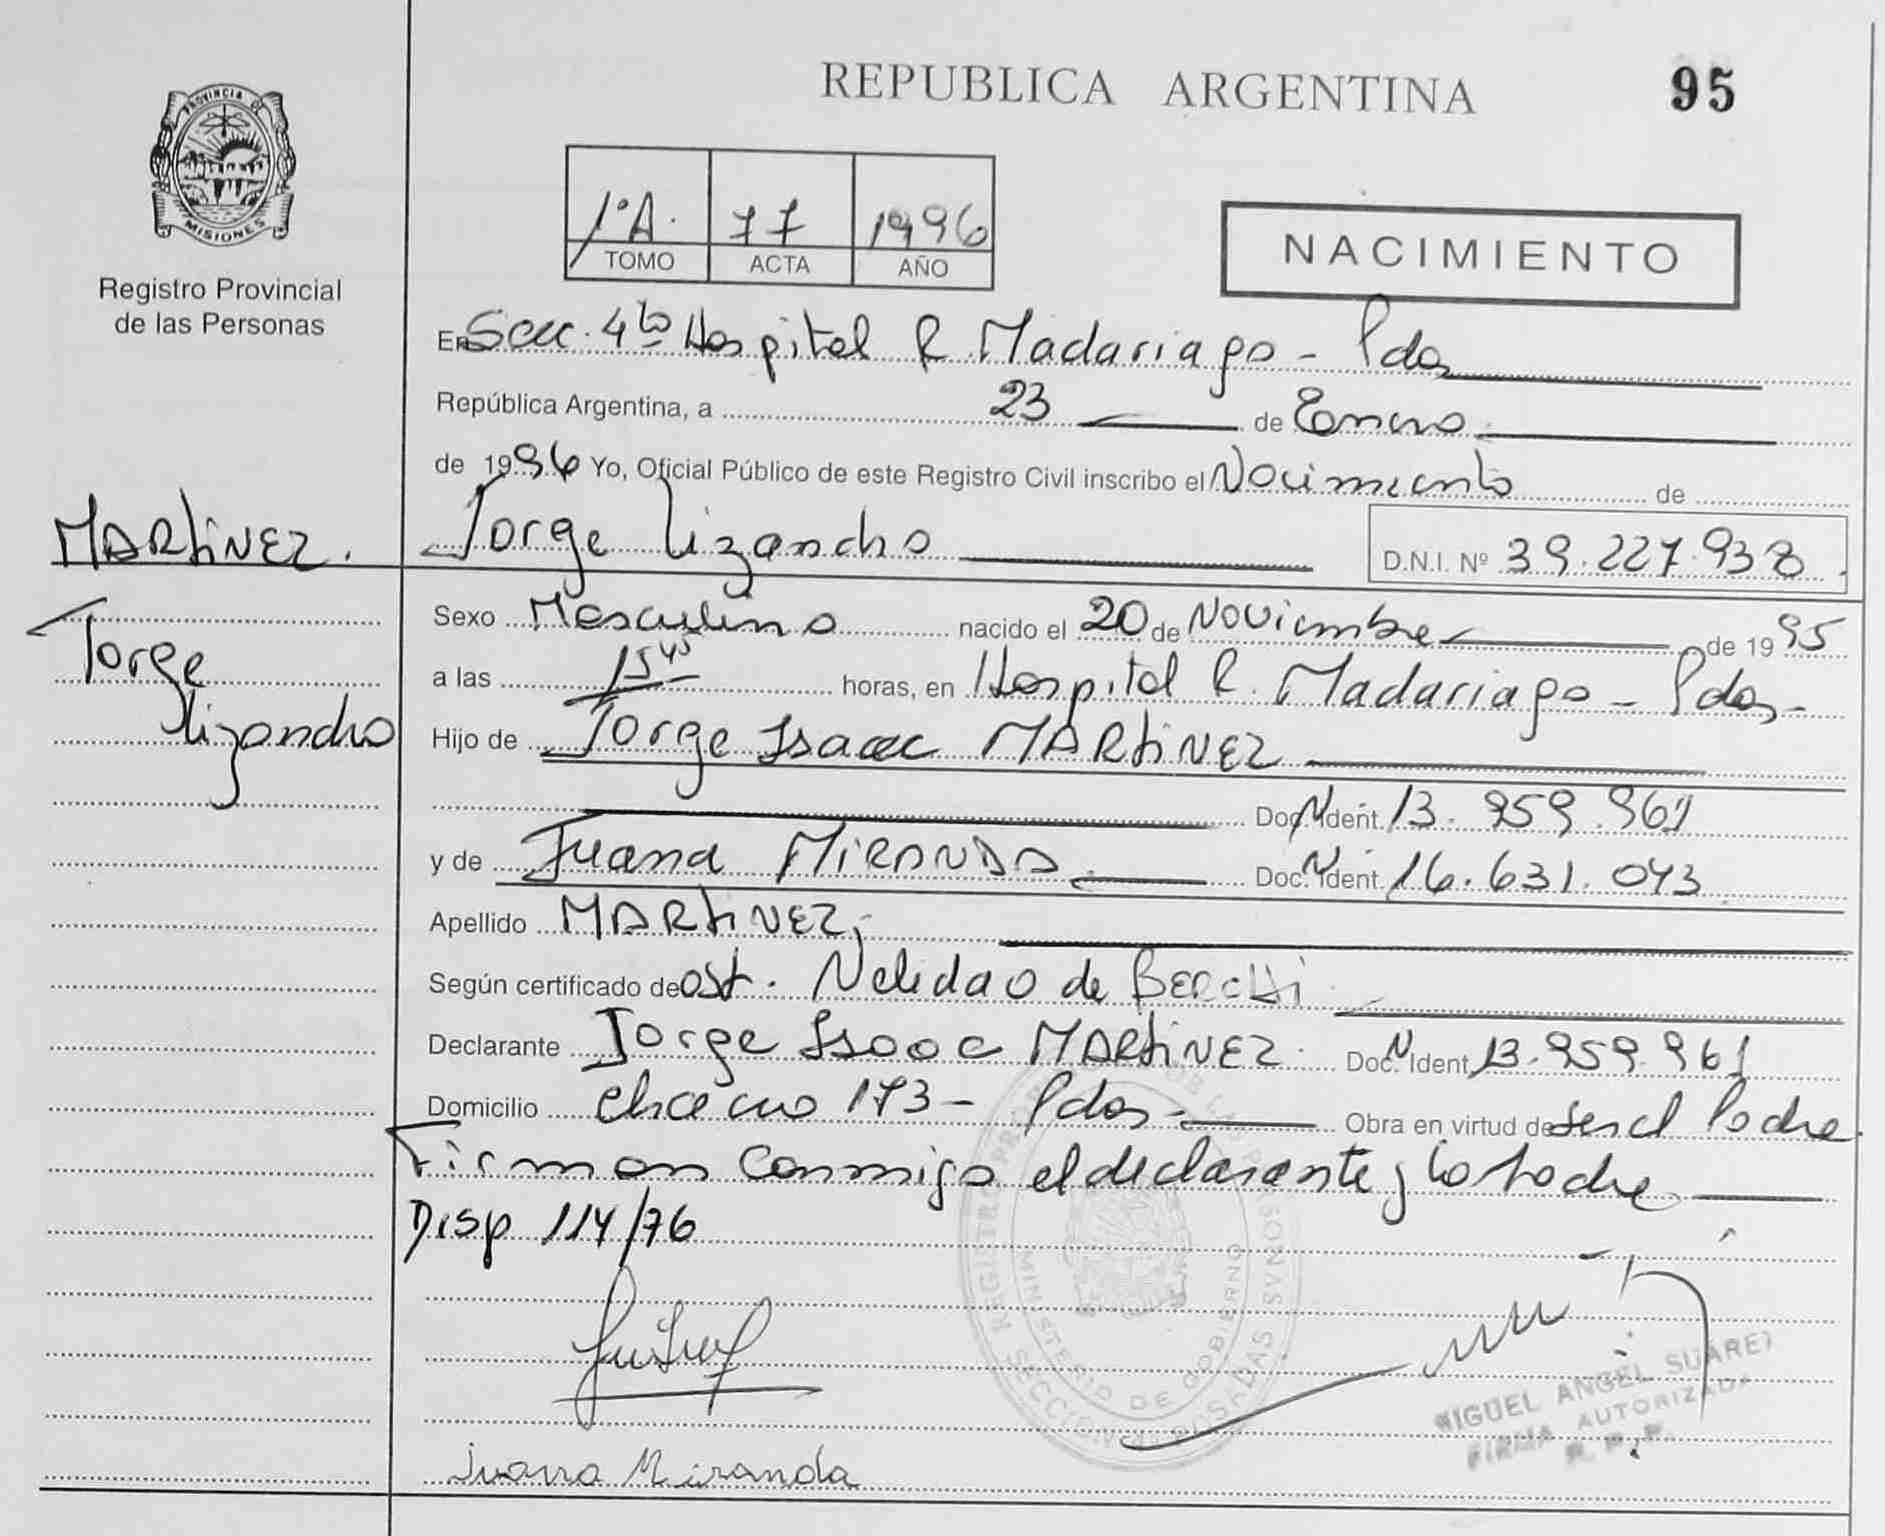 REPUBLICA ARGENTINA
95
PROVINCIA DE
MISIONES
Registro Provincial
de las Personas
1ºA. 77 1996
TOMO ACTA AÑO
NACIMIENTO
En Secc. 4ta Hospital R. Madariaga - Pdas
República Argentina, a 23 de Enero
de 1996 Yo, Oficial Público de este Registro Civil inscribo el Nacimiento de
MARTINEZ.
Jorge Lizandro
D.N.I. Nº 39.227.938
Jorge
Lizandro
Sexo Masculino nacido el 20 de Noviembre de 1995
a las 15 45 horas, en Hospital R. Madariaga - Pdas -
Hijo de Jorge Isaac MARTINEZ
Doc. Ident. 13.959.961
y de Juana MIRANDA Doc. Ident. 16.631.043
Apellido MARTINEZ
Según certificado de Ost. Nelida O de
Declarante Jorge Isaac MARTINEZ. Doc. Ident. 13.959.961
Domicilio 173 - Pdas - Obra en virtud de ser el Padre
Firman conmigo el declarante y la Madre
Disp 114/76
Juana Miranda
REGISTRO
MINISTERIO DE GOBIERNO
POSADAS
MIGUEL ANGEL SUAREZ
FIRMA AUTORIZADA
R. P. P.